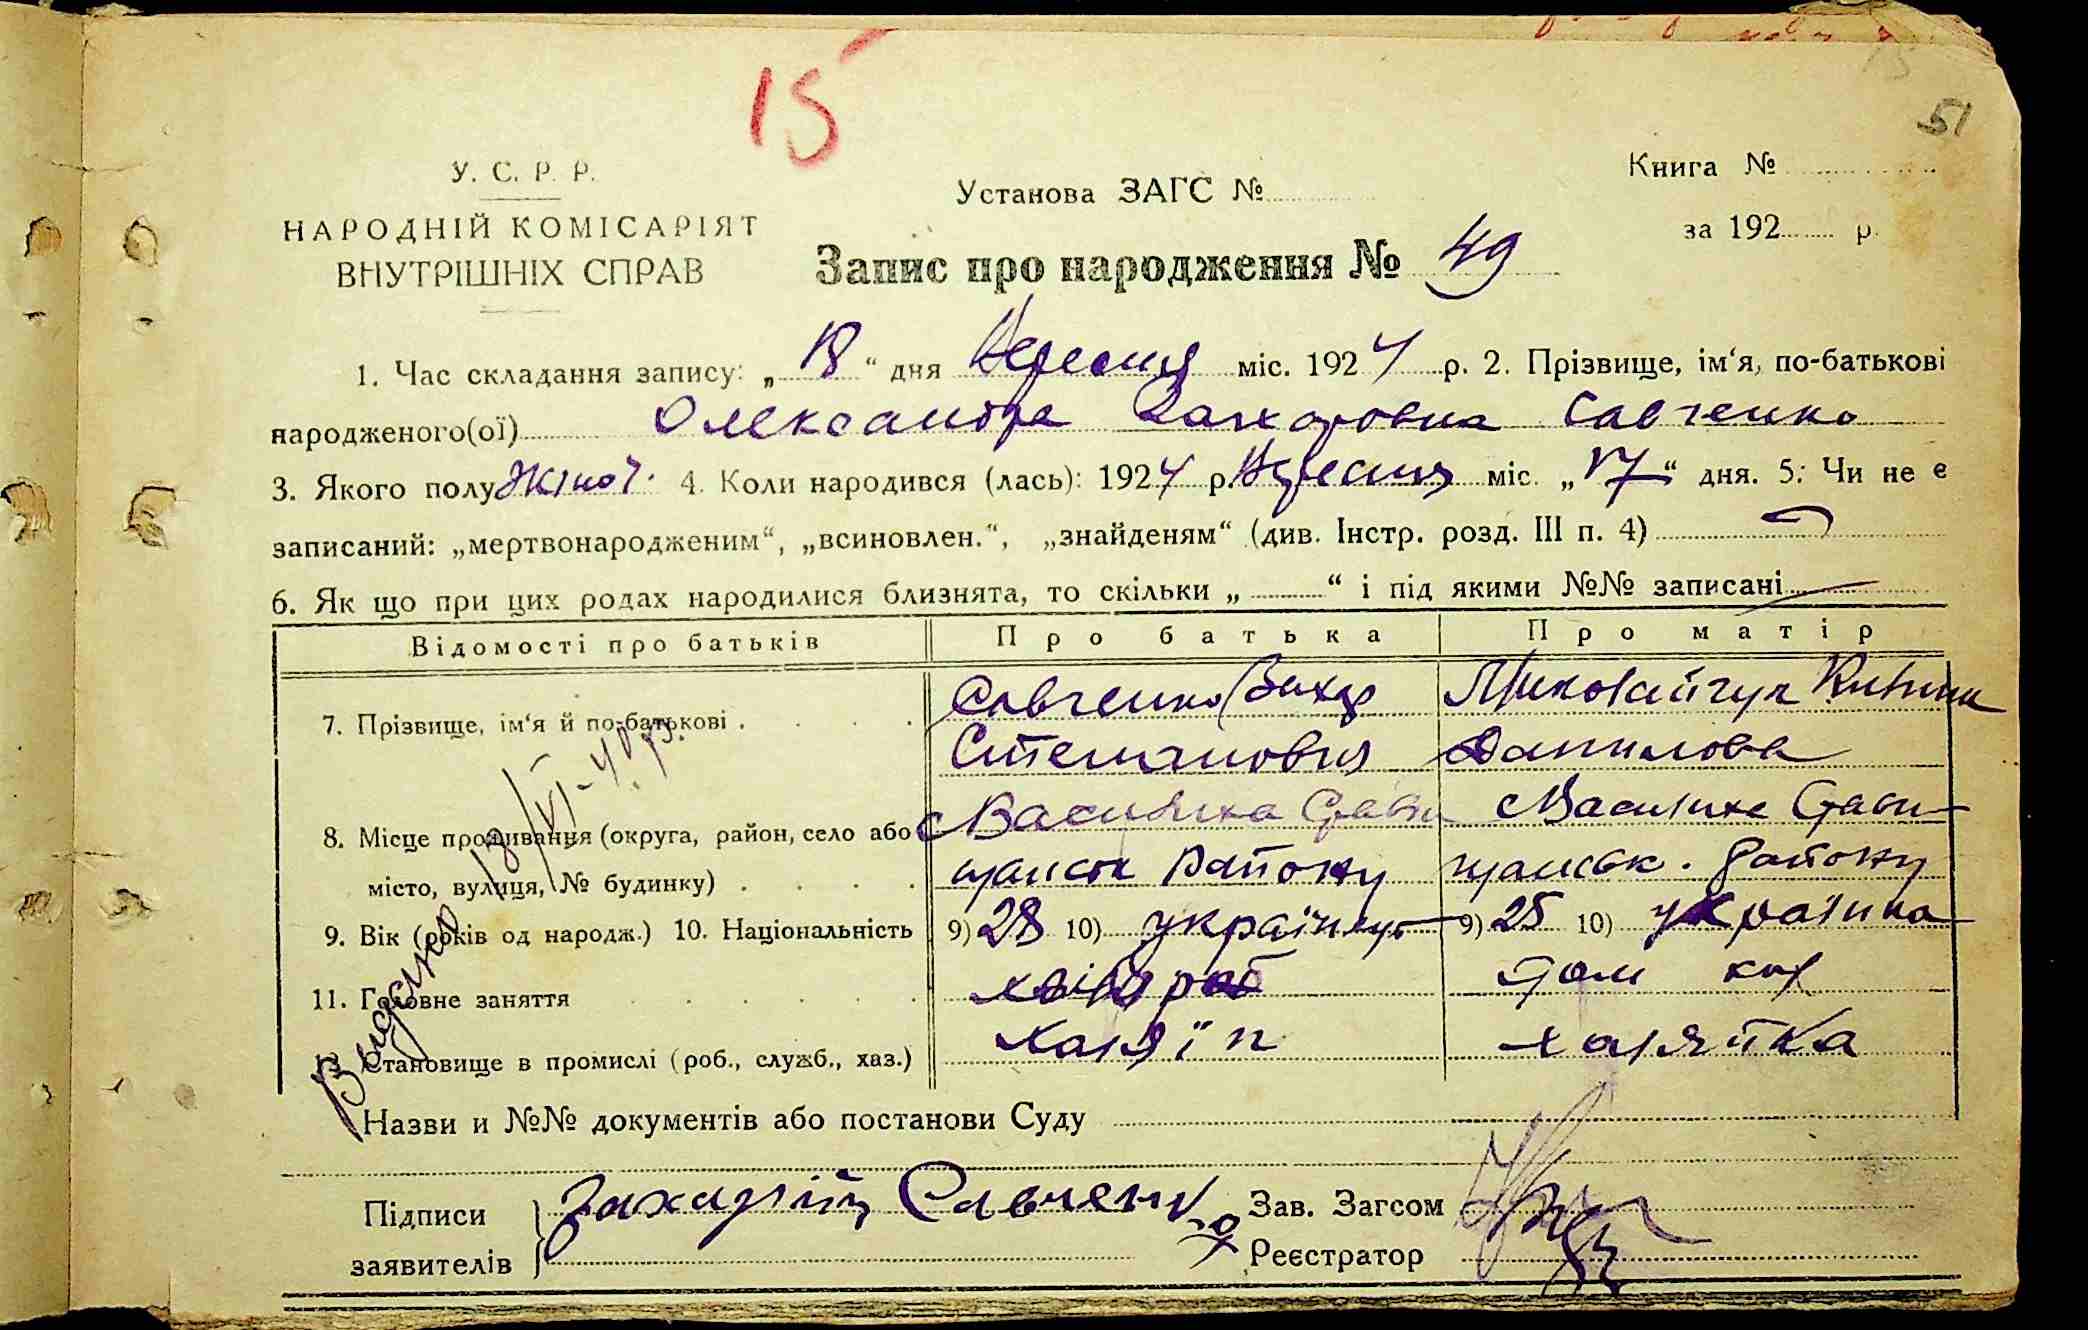 15
51
У. С. Р. Р.
НАРОДНІЙ КОМІСАРІЯТ
ВНУТРІШНІХ СПРАВ
Установа ЗАГС №
Книга №
за 192 р.
Запис про народження № 49
1. Час складання запису: „18“ дня Вересня міс. 1924 р. 2. Прізвище, ім‘я, по-батькові
народженого(ої) Олександра Захоровна Савченко
3. Якого полу Жіної. 4. Коли народився (лась): 1924 р. Вересня міс. „17“ дня. 5: Чи не є
записаний: „мертвонародженим“, „всиновлен.“, „знайденям“ (див. Інстр. розд. III п. 4)
6. Як що при цих родах народилися близнята, то скільки „ “ і під якими №№ записані
Відомості про батьків Про батька Про матір
7. Прізвище, ім‘я й по-батькові . Савченко Захар Миколайчук
Степанович Данилова
8. Місце проживання (округа, район, село або Василиха Стави Василиха Стави
місто, вулиця, № будинку) . щанськ району щанськ. району
9. Вік (років од народж.) 10. Національність 9) 28 10) українець 9) 25 10) Українка
11. Головне заняття хлібороб дом
Становище в промислі (роб., служб., хаз.) хазяїн хазяйка
Видано 18/VI-40 р.
Назви и №№ документів або постанови Суду
Підписи Савченко Зав. Загсом
заявителів Реєстратор